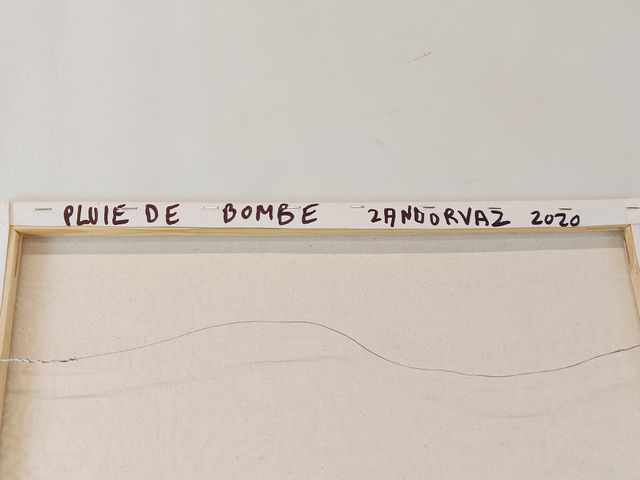 PLUIE DE BOMBE ZANDORVAZ 2020